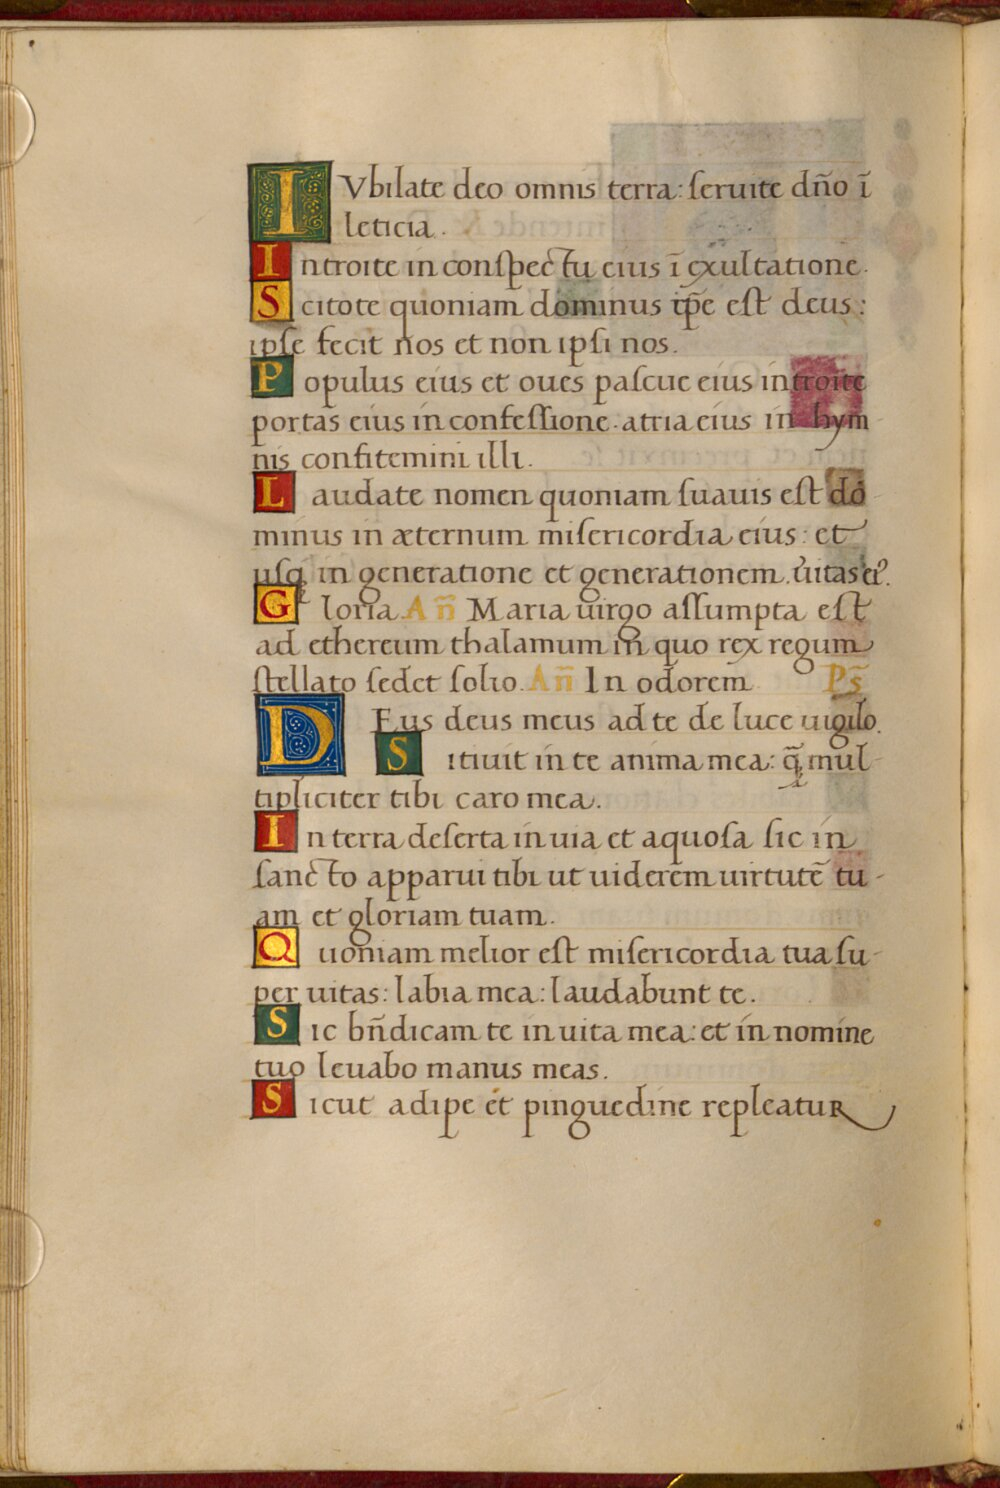 IVbilate deo omnis terra: seruite dño ī
leticia.
Introite in conspectu eius ī exultatione.
Scitote quoniam̄ dominus ip̄e est deus:
ipse fecit nos et non ipsi nos.
Populus eius et oues pascue eius introite
portas eius in confessione. atria eius in hym
nis confitemini illi.
Laudate nomen quoniam suauis est do-
minus in æternum misericordia eius: et
usq̨ in generatione et generationem. ũitas eꝰ.
Gloria. Añ Maria uirgo assumpta est
ad ethereum thalamum in quo rex regum
stellato sedet solio. Añ In odorem Ps̄
DEus deus meus ad te de luce uigilo.
Sitiuit in te anima mea: q̄ mul-
tipliciter tibi caro mea.
In terra deserta inuia et aquosa sic in
sancto apparui tibi ut uiderem uirtutē tu-
am et gloriam tuam.
Quoniam melior est misericordia tua su-
per uitas: labia mea: laudabunt te.
Sic bñdicam te in uita mea: et in nomine
tuo leuabo manus meas.
Sicut adipe et pinguedine repleatur